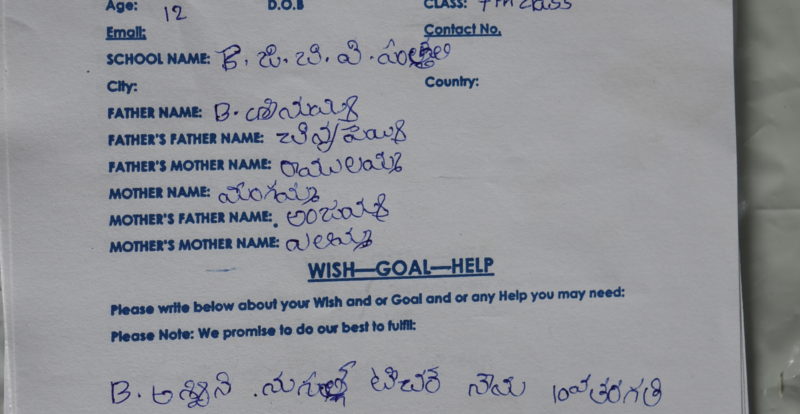 Age: 12 D.O.B CLASS: 7th class
Email: Contact No.
SCHOOL NAME: కె. జి. బి. వి.
City: Country:
FATHER NAME: B.
FATHER'S FATHER NAME:
FATHER'S MOTHER NAME: రాములమ్మ
MOTHER NAME: మంగమ్మ
MOTHER'S FATHER NAME: అంజయ్య
MOTHER'S MOTHER NAME:
WISH—GOAL—HELP
Please write below about your Wish and or Goal and or any Help you may need:
Please Note: We promise to do our best to fulfil:
B. అశ్విని టీచర్ నేను 10వ తరగతి